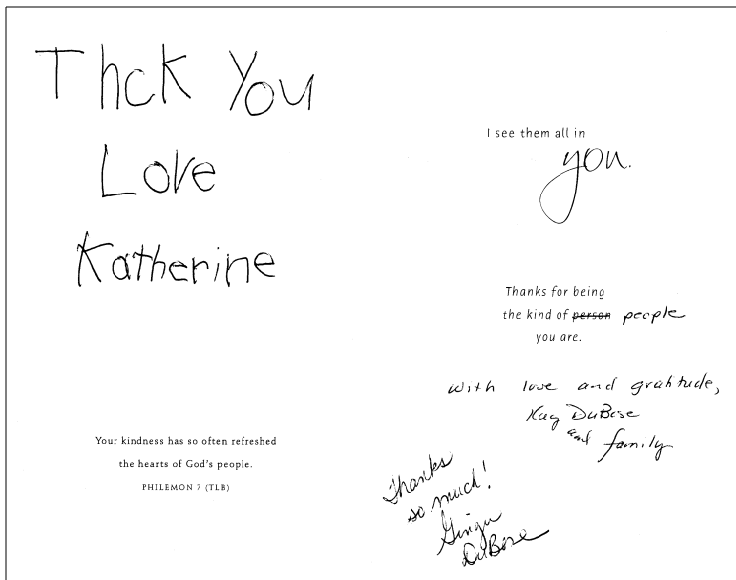 Thck You
Love
Katherine
Your kindness has so often refreshed
the hearts of God's people.
PHILEMON 7 (TLB)
I see them all in
you.
Thanks for being
the kind of person people
you are.
with love and gratitude,
Kay DuBose
and family
Thanks
so much!
Ginger
DuBose